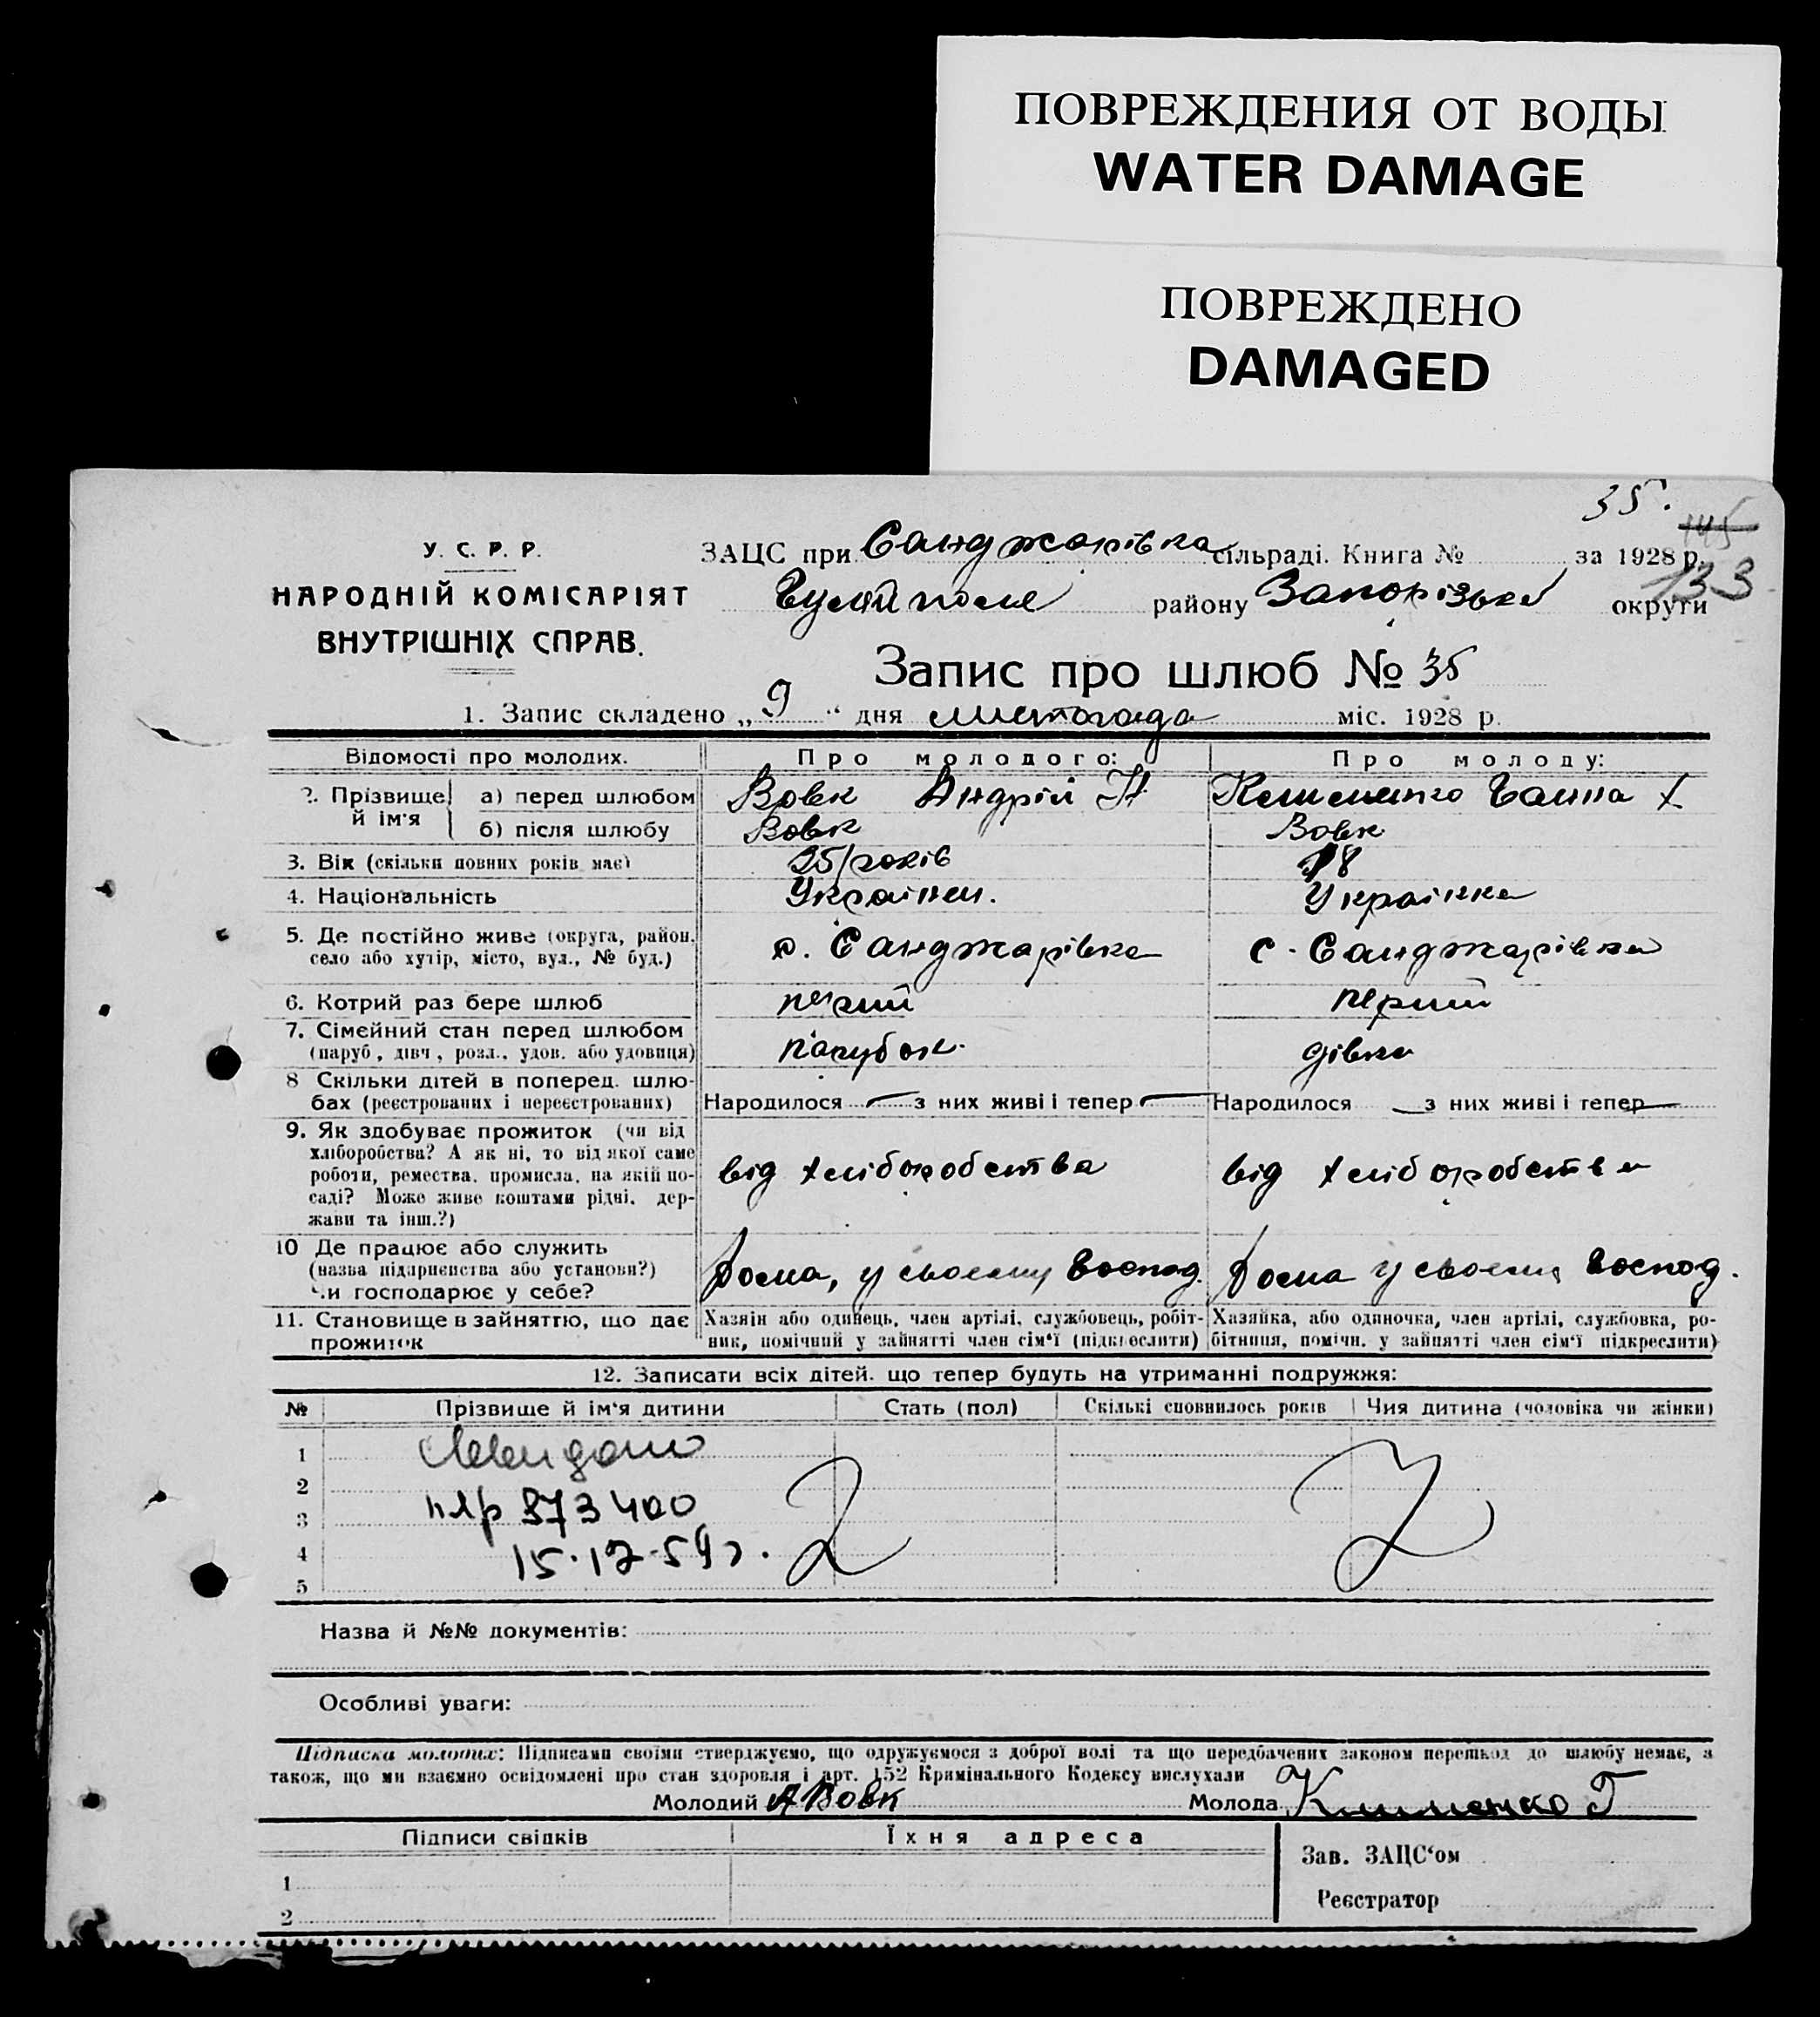 ПОВРЕЖДЕНИЯ ОТ ВОДЫ
WATER DAMAGE
ПОВРЕЖДЕНО
DAMAGED
35.
145
133
У. С. Р. Р.
НАРОДНІЙ КОМІСАРІЯТ
ВНУТРІШНІХ СПРАВ.
ЗАЦС при Санджарівка сільраді. Книга № за 1928 р.
Гуляйполе району Запорізька округи
Запис про шлюб № 35
1. Запис складено „ 9 “ дня листопада міс. 1928 р.
Відомості про молодих. Про молодого: Про молоду:
2. Прізвище й ім'я а) перед шлюбом Вовк Андрій Клименко Ганна Х
б) після шлюбу Вовк Вовк
3. Вік (скільки повних років має) 25 років 18
4. Національність Українец. Українка
5. Де постійно живе (округа, район, с. Санджарівка с. Санджарівка
село або хутір, місто, вул., № буд.)
6. Котрий раз бере шлюб перший перший
7. Сімейний стан перед шлюбом парубок. дівка
(паруб, дівч, розл., удов. або удовиця)
8 Скільки дітей в поперед. шлю-
бах (реєстрованих і нереєстрованих) Народилося — з них живі і тепер — Народилося — з них живі і тепер —
9. Як здобуває прожиток (чи від
хліборобства? А як ні, то від якої саме
роботи, ремества, промисла, на якій по- від хліборобства від хліборобства
саді? Може живе коштами рідні, дер-
жави та інш.?)
10 Де працює або служить
(назва підприємства або установи?) Дома, у своєму господ. Дома у своєму господ.
Чи господарює у себе?
11. Становище в зайняттю, що дає прожиток
Хазяін або одинець, член артілі, службовець, робіт-
ник, помічний у зайнятті член сім'ї (підкреслити)
Хазяйка, або одиночка, член артілі, службовка, ро-
бітниця, помічн. у зайнятті член сім'ї підкреслити)
12. Записати всіх дітей. що тепер будуть на утриманні подружжя:
№ Прізвище й ім'я дитини Стать (пол) Скількі сповнилось років Чия дитина (чоловіка чи жінки)
1
2
3 873400
4 15.12.54 г.
5
Назва й №№ документів:
Особливі уваги:
Підписка молодих: Підписами своїми стверджуємо, що одружуємося з доброї волі та що передбачених законом перешкод до шлюбу немає, а
також, що ми взаємно освідомлені про стан здоровля і арт. 152 Кримінального Кодексу вислухали
Молодий А Вовк Молода Клименко Г
Підписи свідків Їхня адреса
Зав. ЗАЦС'ом
1
Реєстратор
2